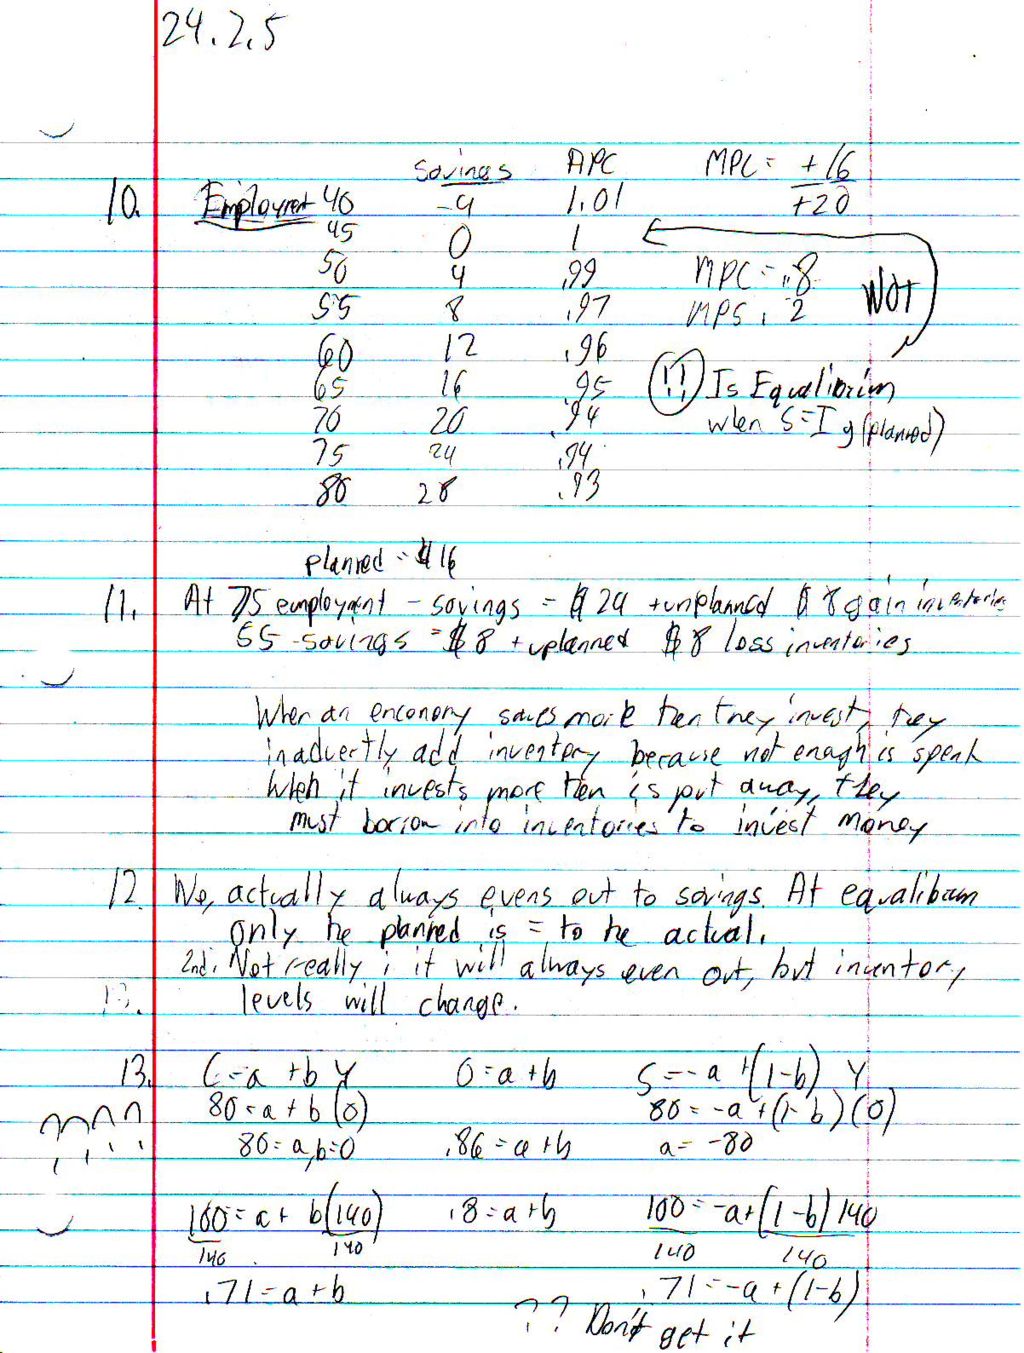 24.2.5
Savings APC MPC = +16
10. Employment 40 -4 1.01 +20
45 0 1
50 4 .99 MPC = .8 Not
55 8 .97 MPS .2
60 12 .96
65 16 .95 !! Is Equalibrium
70 20 .94 when S=Ig (planned)
75 24 .94
80 28 .93
planned = $16
11. At 75 employment - savings = $24 + unplanned $8 gain inventories
55 - savings = $8 + uplanned $8 loss inventories
When an enconomy saves more then they invest, they
inadvertly add inventory because not enough is spent
When it invests more then is put away, they
must borrow into inventories to invest money
12. No, actually always evens out to savings. At equalibium
only the planned is = to the actual.
2nd. Not really; it will always even out, but inventory
13. levels will change.
13. C=a+bY 0=a+b S=-a+(1-b)Y
80=a+b(0) 80=-a+(1-b)(0)
80=a,b=0 .86=a+b a=-80
100=a+b(140) .8=a+b 100=-a+(1-b)140
140 140 140 140
.71=a+b .71=-a+(1-b)
?? Don't get it